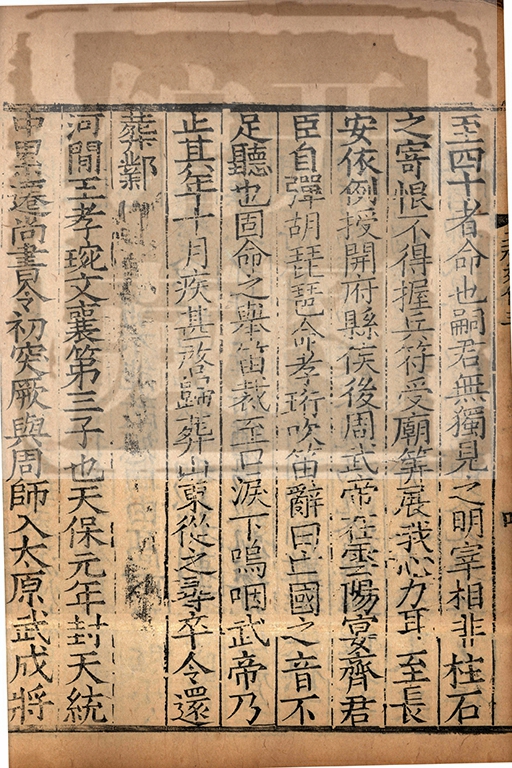 至四十者命也嗣君無獨見之明宰相非柱石
之寄恨不得握兵符受廟筭展我心力耳至長
安依例授開府縣侯後周武帝在雲陽宴齊君
臣自彈胡琵琶命孝珩吹笛辭曰亡國之音不
足聽也固命之舉笛裁至口淚下嗚咽武帝乃
止其年十月疾甚啓歸葬山東從之尋卒令還
葬鄴
河間王孝琬文襄第三子也天保元年封天統
中累遷尚書令初突厥與周師入太原武成將